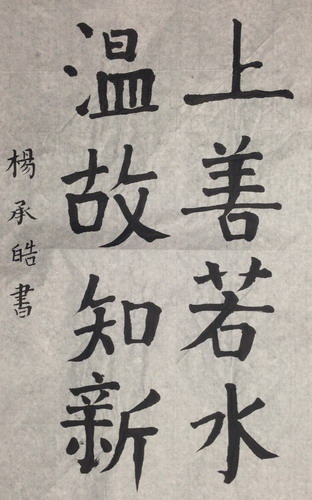 上善若水
温故知新
楊承皓書